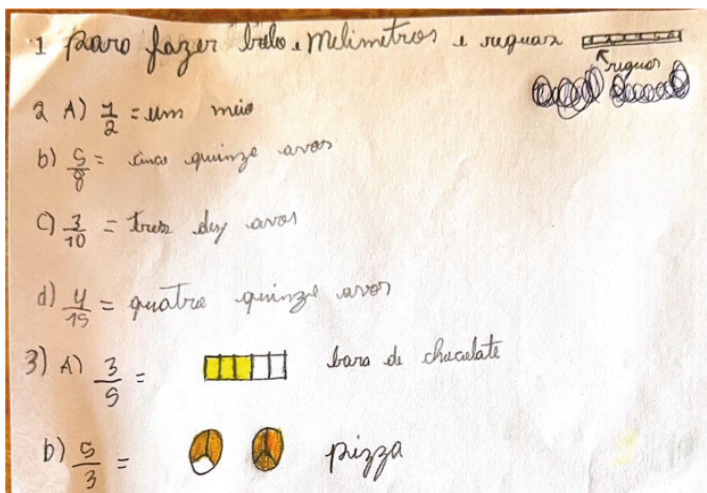 1 paro fazer bolo, melimetros e reguas
reguas
2 A) 1/2 = um meio
b) 5/8 = cinco quinze avos
c) 3/10 = tres dez avos
d) 4/15 = quatro quinze avos
3) A) 3/5 = bara de chucolate
b) 5/3 = pizza